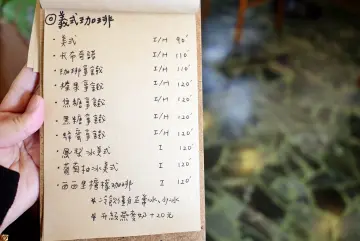 ◎義式咖啡
・美式 I/H 90'
・卡布奇諾 I/H 110'
・咖啡拿鐵 I/H 110'
・榛果拿鐵 I/H 120'
・焦糖拿鐵 I/H 120'
・黑糖拿鐵 I/H 120'
・蜂蜜拿鐵 I/H 120'
・風型冰美式 I 120'
・葡萄柚冰美式 I 120'
・西西里檸檬咖啡 I 120'
升級燕麥奶+20元